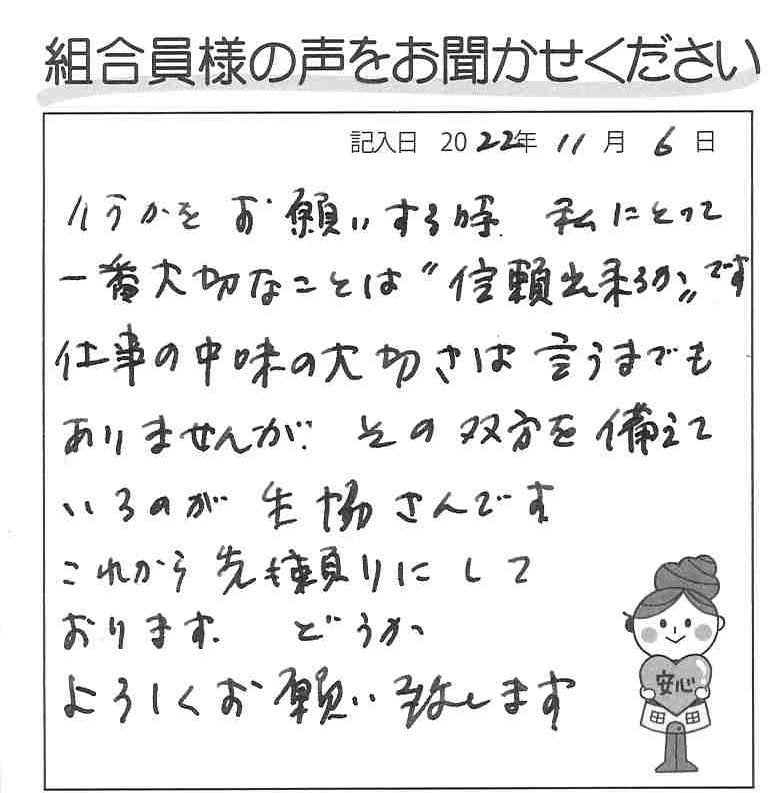 組合員様の声をお聞かせください
記入日 2022年 11月 6日
お願いする時 私にとって
一番大切なことは〝信頼出来るか〟です
仕事の中味の大切さは 言うまでも
ありませんが、その双方を備えて
いるのが 生協さんです
これから先も頼りにして
おります。 どうか
よろしくお願い致します
安心